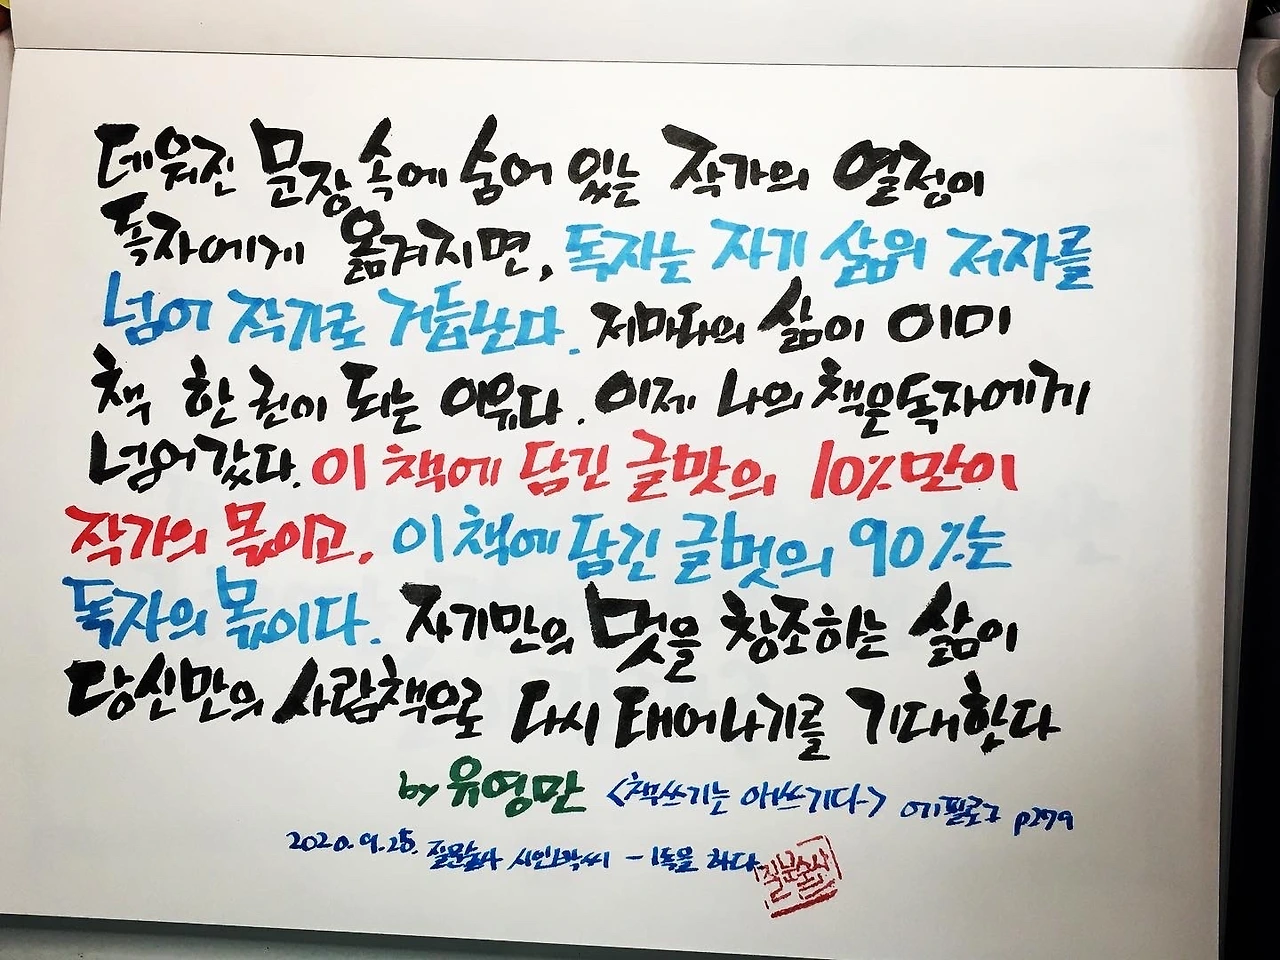 데워진 문장 속에 숨어 있는 작가의 열정이
독자에게 옮겨지면, 독자는 자기 삶의 저자를
넘어 작가로 거듭난다. 저마다의 삶이 이미
책 한 권이 되는 이유다. 이제 나의 책은 독자에게
넘어갔다. 이 책에 담긴 글맛의 10%만이
작가의 몫이고, 이 책에 담긴 글멋의 90%는
독자의 몫이다. 자기만의 멋을 창조하는 삶이
당신만의 사람책으로 다시 태어나기를 기대한다
by 유영만 <책쓰기는 애쓰기다> 에필로그 p279
2020.9.25. 질문술사 시인박씨 - 1독을 하다
질문술사